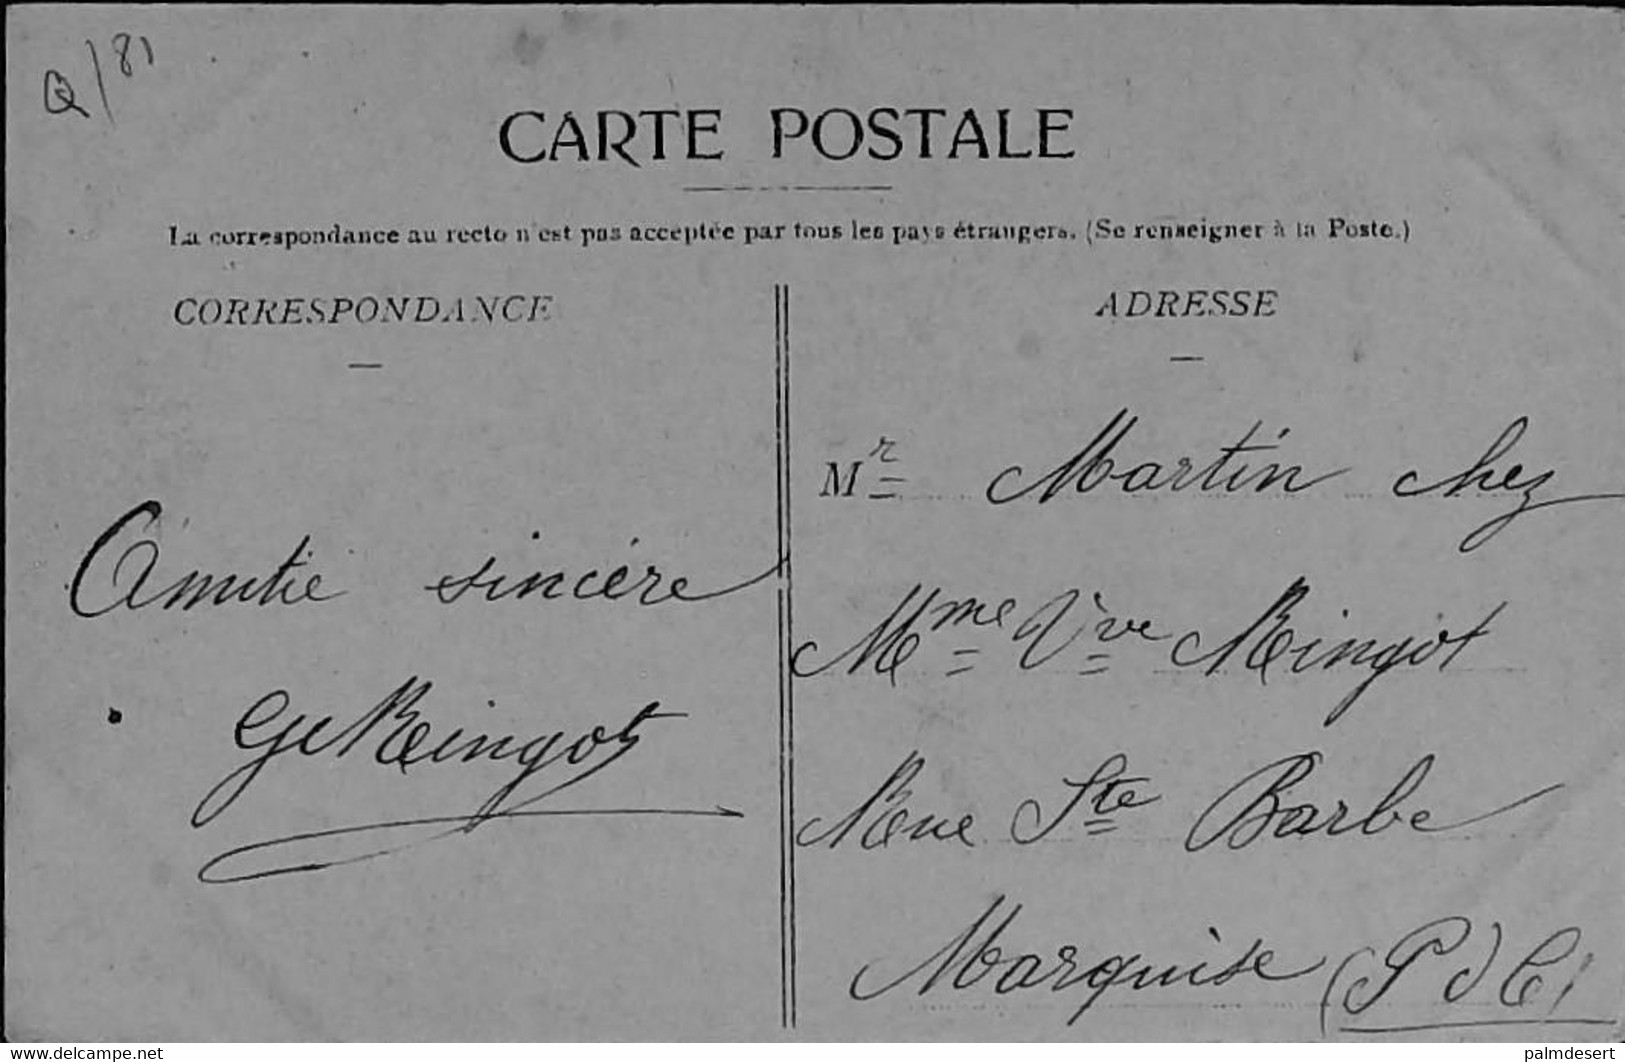 Q/81
CARTE POSTALE
La correspondance au recto n'est pas acceptée par tous les pays étrangers. (Se renseigner à la Poste.)
CORRESPONDANCE
Amitié sincère
G Ringot
ADRESSE
Mr Martin chez
Mme Vve Ringot
Rue Ste Barbe
Marquise (P d C)
delcampe.net
palmdesert